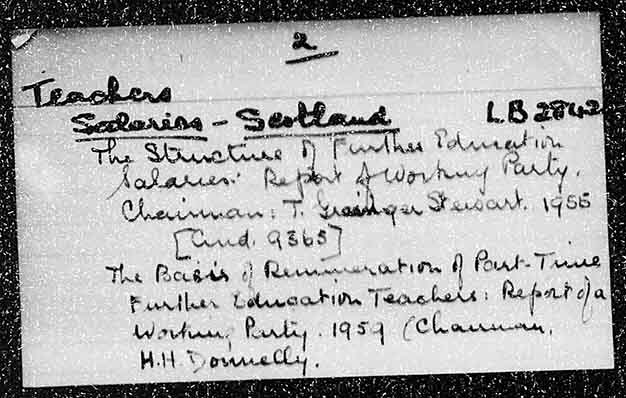 2
Teachers
Salaries - Scotland LB2842
The Structure of Further Education
Salaries: Report of Working Party.
Chairman: T. Grainger Stewart. 1955
[Cmd. 9365]
The Basis of Remuneration of Part-Time
Further Education Teachers: Report of a
Working Party. 1959 (Chairman,
H.H. Donnelly.